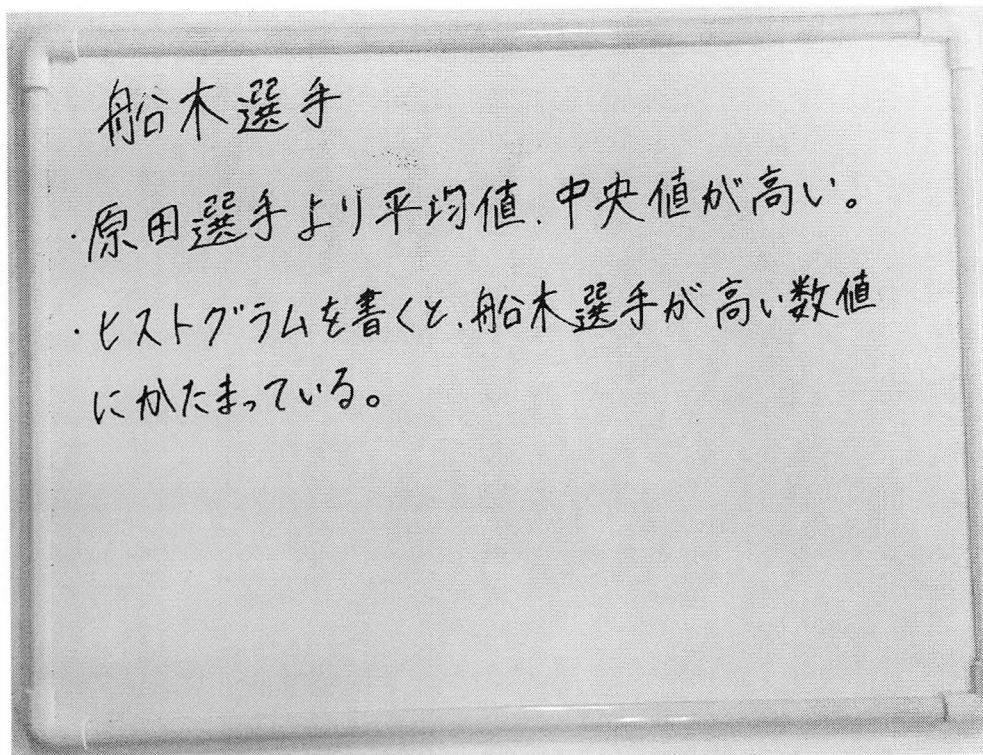 船木選手
・原田選手より平均値、中央値が高い。
・ヒストグラムを書くと、船木選手が高い数値
にかたまっている。